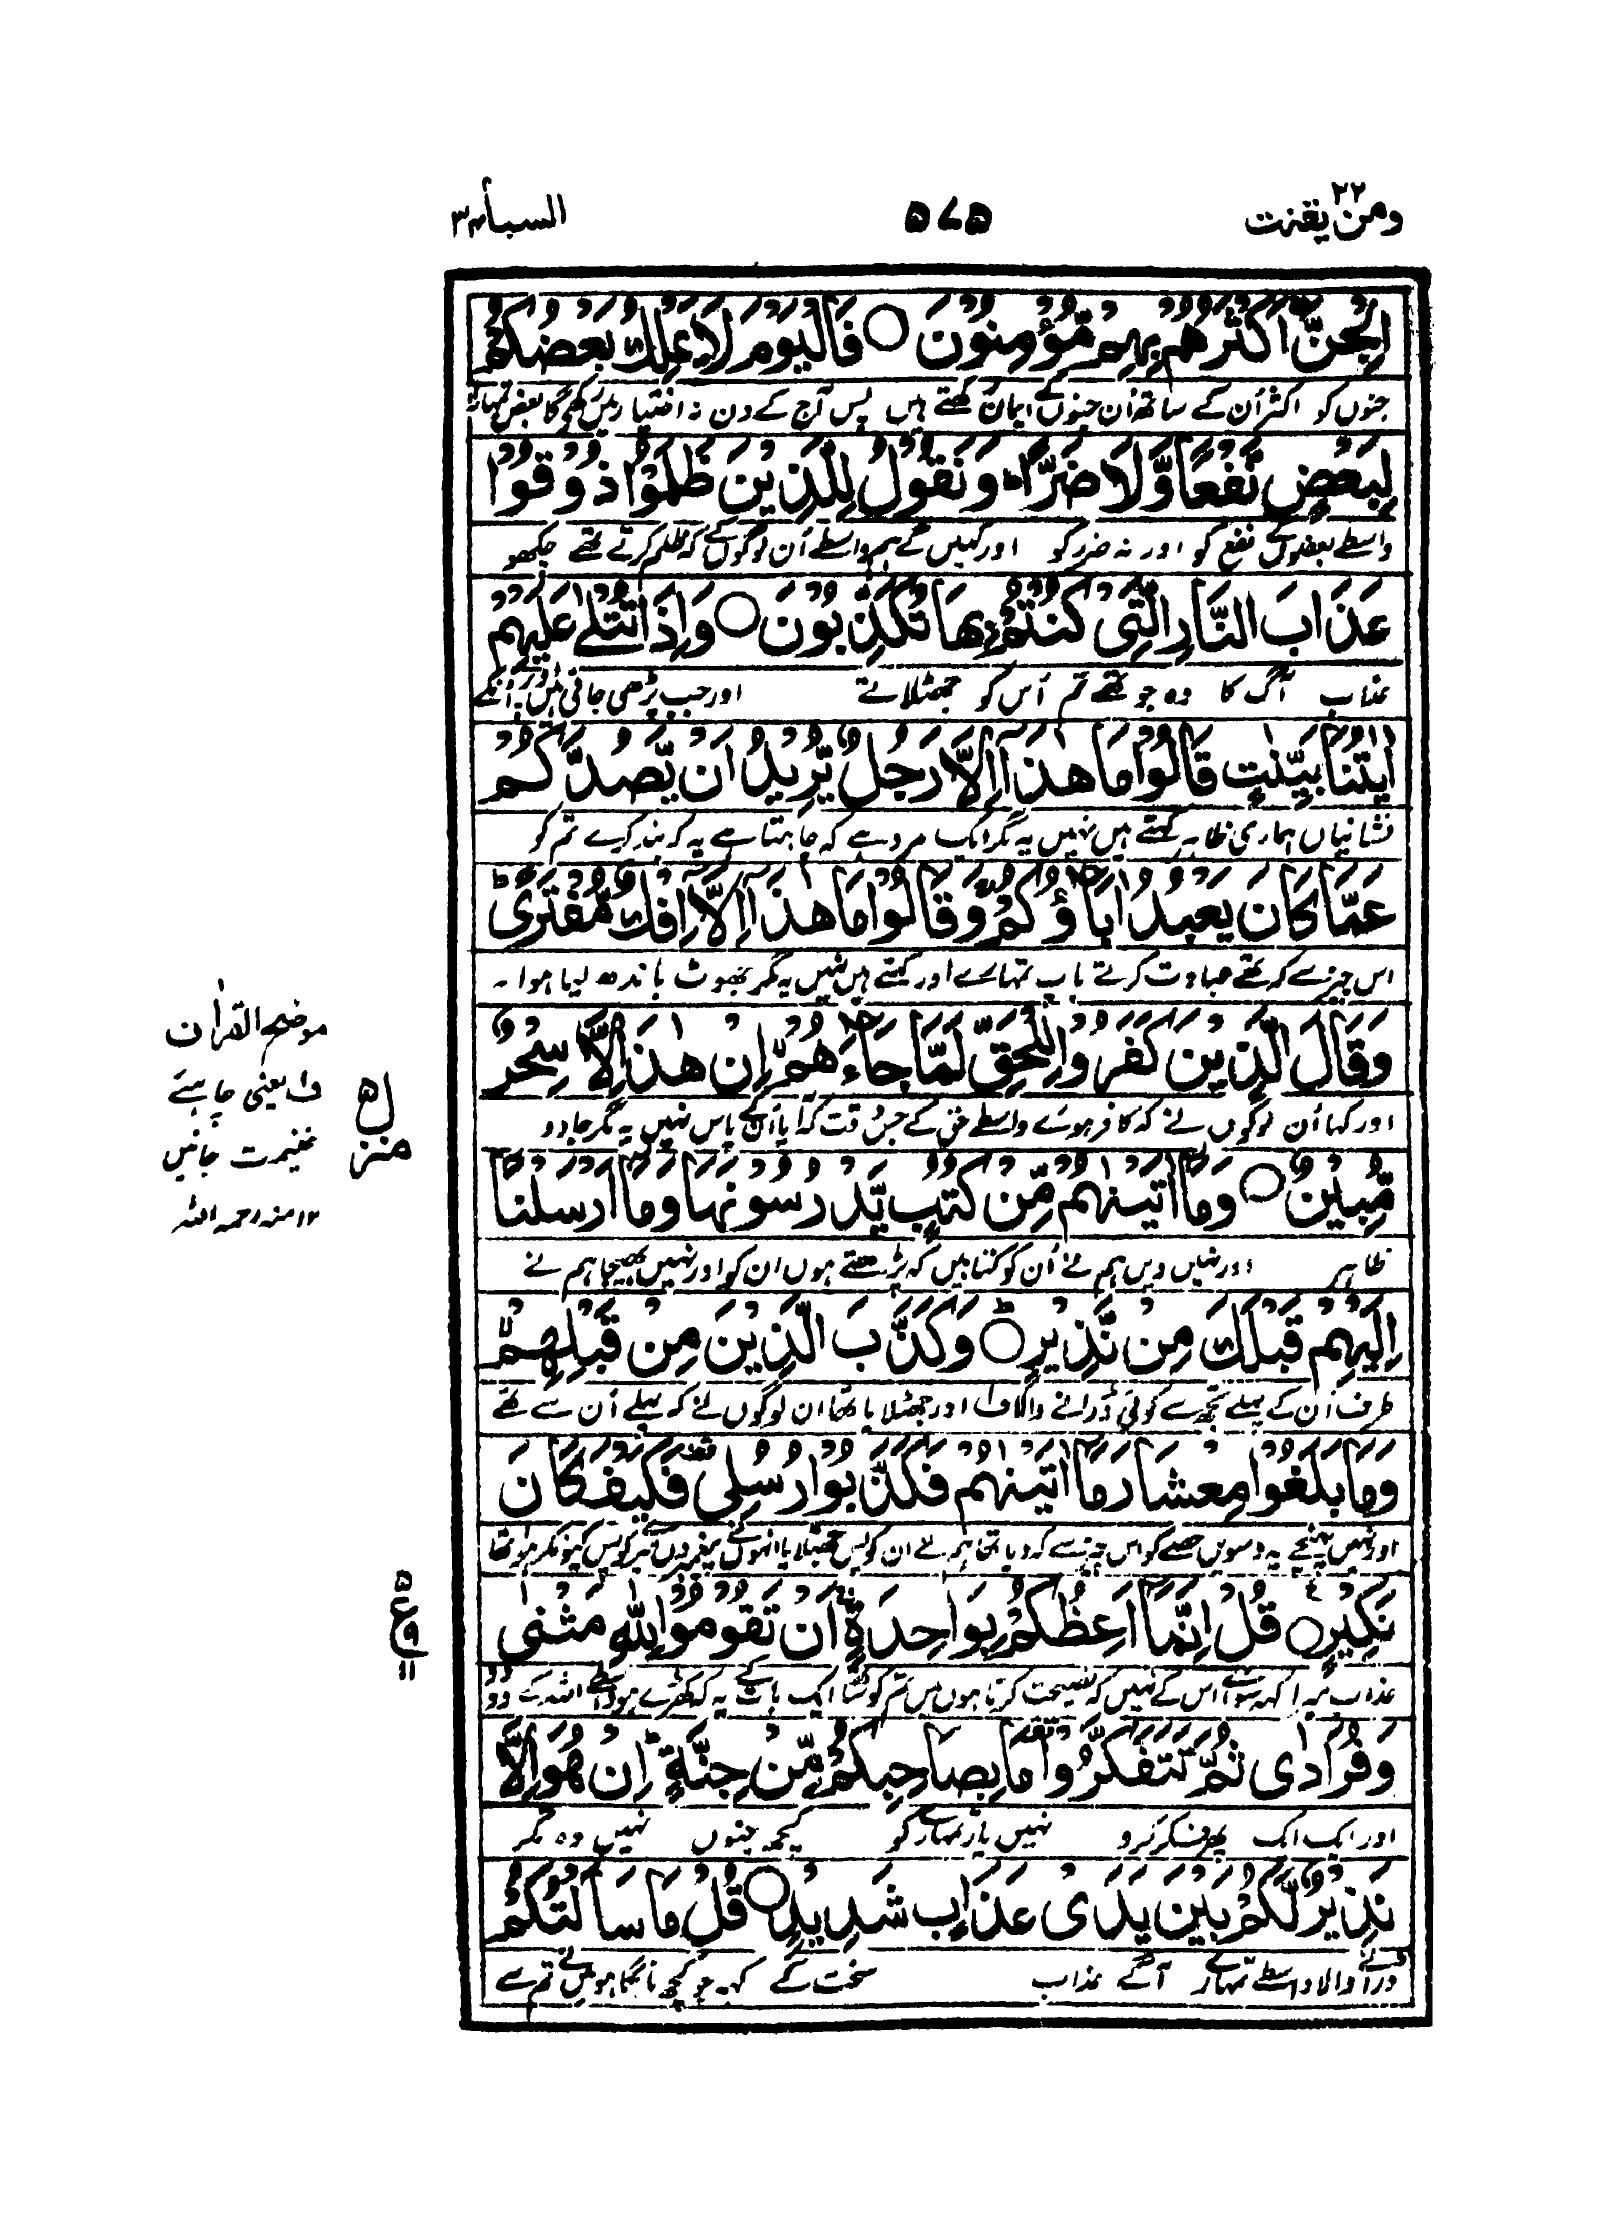 ومن یقنت ۲۲
۵۷۵
السبأ ۳۴
الْجِنَّ اَكْثَرُهُمْ بِهِمْ مُّؤْمِنُوْنَ ○ فَالْيَوْمَ لَا يَمْلِكُ بَعْضُكُمْ
جنوں کو اکثر اُن کے ساتھ اُن جنوں کے ایمان رکھتے ہیں پس آج کے دن نہ اختیار رکھے گا بعض تمہارا
لِبَعْضٍ نَّفْعًا وَّلَا ضَرًّا ؕ وَنَقُوْلُ لِلَّذِيْنَ ظَلَمُوْا ذُوْقُوْا
واسطے بعضوں کے نفع کو اور نہ ضرر کو اور کہیں گے ہم واسطے اُن لوگوں کے کہ ظلم کرتے تھے چکھو
عَذَابَ النَّارِ الَّتِيْ كُنْتُمْ بِهَا تُكَذِّبُوْنَ ○ وَاِذَا تُتْلٰى عَلَيْهِمْ
عذاب آگ کا وہ جو تھے تم اُس کو جھٹلاتے اور جب پڑھی جاتی ہیں اوپر اُنکے
اٰيٰتُنَا بَيِّنٰتٍ قَالُوْا مَا هٰذَآ اِلَّا رَجُلٌ يُّرِيْدُ اَنْ يَّصُدَّكُمْ
نشانیاں ہماری ظاہر کہتے ہیں نہیں یہ مگر ایک مرد ہے کہ چاہتا ہے یہ کہ بند کرے تم کو
عَمَّا كَانَ يَعْبُدُ اٰبَآؤُكُمْ ۚ وَقَالُوْا مَا هٰذَآ اِلَّآ اِفْكٌ مُّفْتَرًى ؕ
اس چیز سے کہ تھے عبادت کرتے باپ تمہارے اور کہتے ہیں نہیں یہ مگر جھوٹ باندھ لیا ہوا ۔
وَقَالَ الَّذِيْنَ كَفَرُوْا لِلْحَقِّ لَمَّا جَآءَهُمْ ۙ اِنْ هٰذَآ اِلَّا سِحْرٌ
اور کہا اُن لوگوں نے کہ کافر ہوئے واسطے حق کے جس وقت کہ آیا اُن کے پاس نہیں یہ مگر جادو
مُّبِيْنٌ ○ وَمَآ اٰتَيْنٰهُمْ مِّنْ كُتُبٍ يَّدْرُسُوْنَهَا وَمَآ اَرْسَلْنَآ
ظاہر اور نہیں دیں ہم نے اُن کو کتابیں کہ پڑھتے ہوں ان کو اور نہیں بھیجا ہم نے
اِلَيْهِمْ قَبْلَكَ مِنْ نَّذِيْرٍ ○ ؕ وَكَذَّبَ الَّذِيْنَ مِنْ قَبْلِهِمْ ۙ
طرف اُن کے پہلے تجھ سے کوئی ڈرانے والا ف۱ اور جھٹلایا تھا ان لوگوں نے کہ پہلے اُن سے تھے
وَمَا بَلَغُوْا مِعْشَارَ مَآ اٰتَيْنٰهُمْ فَكَذَّبُوْا رُسُلِيْ ۫ فَكَيْفَ كَانَ
اور نہیں پہنچے یہ دسویں حصے کو اس چیز سے کہ دیا تھا ہم نے ان کو پس جھٹلایا انہوں نے پیغمبروں میرے کو پس کیونکر ہوا تھا
نَكِيْرِ ○ ع قُلْ اِنَّمَآ اَعِظُكُمْ بِوَاحِدَةٍ ۚ اَنْ تَقُوْمُوْا لِلّٰهِ مَثْنٰى
عذاب میرا کہہ سوائے اس کے نہیں کہ نصیحت کرتا ہوں میں تم کو ساتھ ایک بات کے یہ کہ کھڑے ہو واسطے اللہ کے دو دو
وَفُرَادٰى ثُمَّ تَتَفَكَّرُوْا ۫ مَا بِصَاحِبِكُمْ مِّنْ جِنَّةٍ ؕ اِنْ هُوَ اِلَّا
اور ایک ایک پھر فکر کرو نہیں یار تمہارے کو کچھ جنوں نہیں وہ مگر
نَذِيْرٌ لَّكُمْ بَيْنَ يَدَيْ عَذَابٍ شَدِيْدٍ ○ قُلْ مَا سَاَلْتُكُمْ
ڈرانے والا واسطے تمہارے آگے عذاب سخت کے کہہ جو کچھ مانگا ہو میں نے تم سے
موضح القرآن
ف۱ یعنی چاہیے
غنیمت جانیں
۱۲ منہ رحمہ اللہ
منزل ۵
۵
ع
۱۱